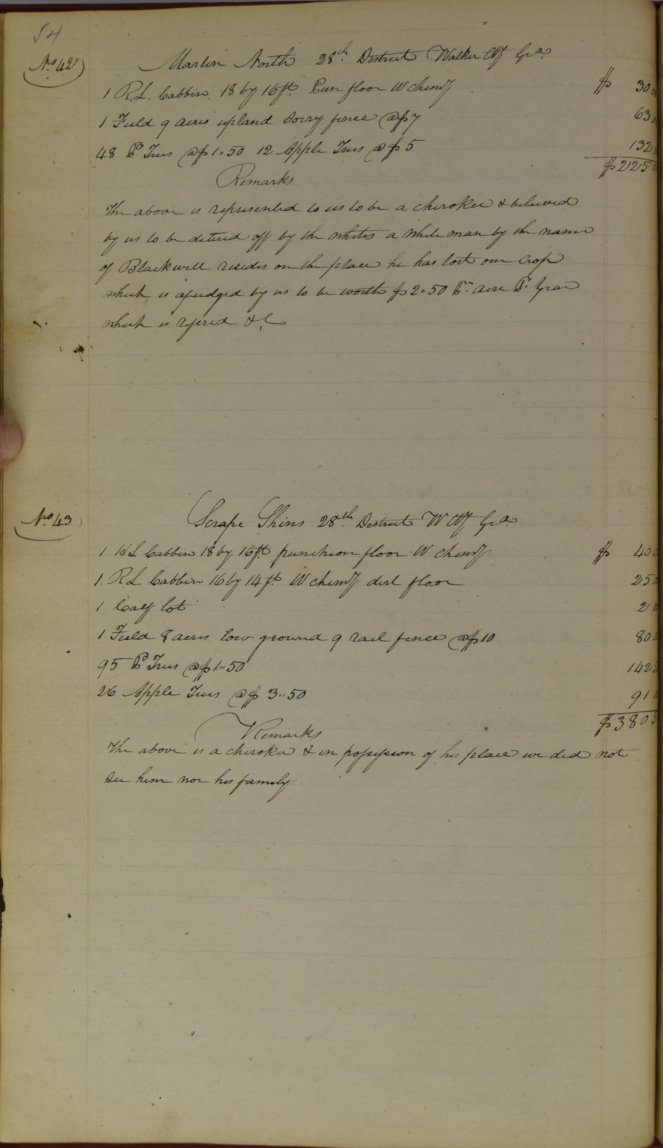 54
No 42
Martin North 28th District Walker Cty Ga
1 R.L. Cabbin 18 by 16 ft Pun floor W chimy $ 30
1 Field 9 acres upland sorry fence @ $7 63
48 P Trees @ $1-50 12 Apple Trees @ $5 132
$225
Remarks
The above is represented to us to be a cherokee & believed
by us to be detered off by the whites a white man by the name
of Blackwell resides on the place he has lost one crop
which is ajudged by us to be worth $2-50 Pr acre Pr Year
which is refered &c
No 43
Scrape Shins 28th District W Cty Ga
1 HL Cabbin 18 by 16 ft puncheon floor W chimy $ 40
1 RL Cabbin 16 by 14 ft W chimy dirt floor 25
1 Calf lot 2
1 Field 8 acres low ground 9 rail fence @ $10 80
95 P Trees @ $1-50 142
26 Apple Trees @ $ 3-50 91
$380
Remarks
The above is a cherokee & in possession of his place we did not
see him nor his family